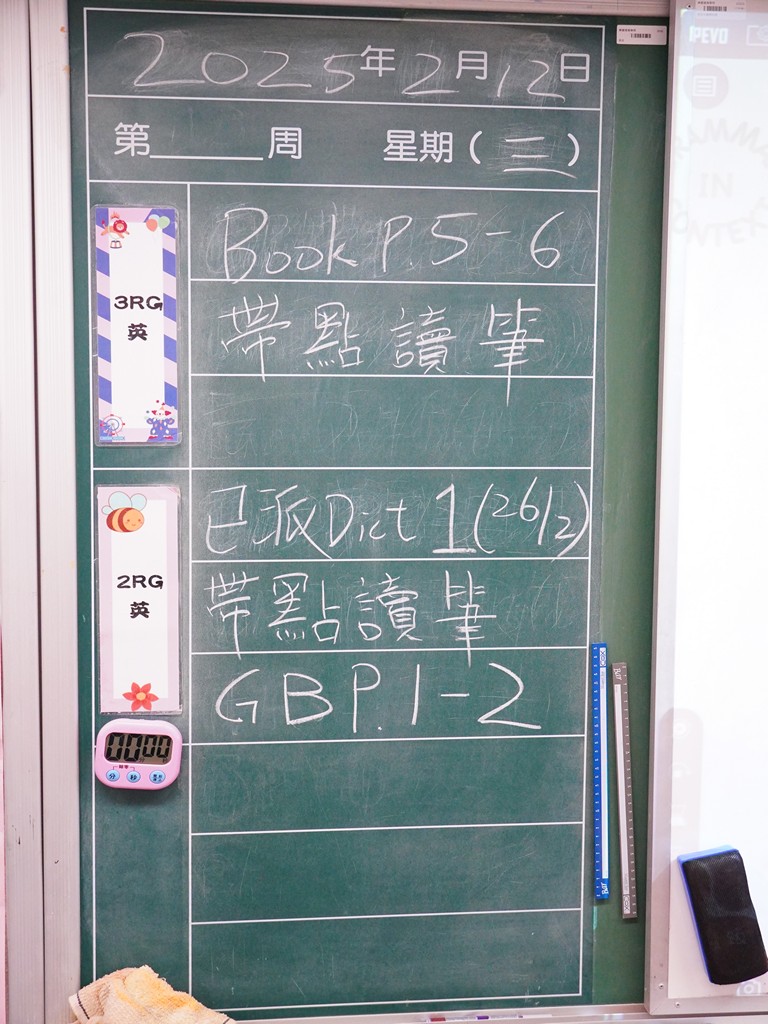 2025年2月12日
第______周 星期(三)
3RG
英
Book P.5-6
帶點讀筆
2RG
英
已派Dict 1(26/2)
帶點讀筆
GB P.1-2
00:00
分 秒
IPEVO
IN